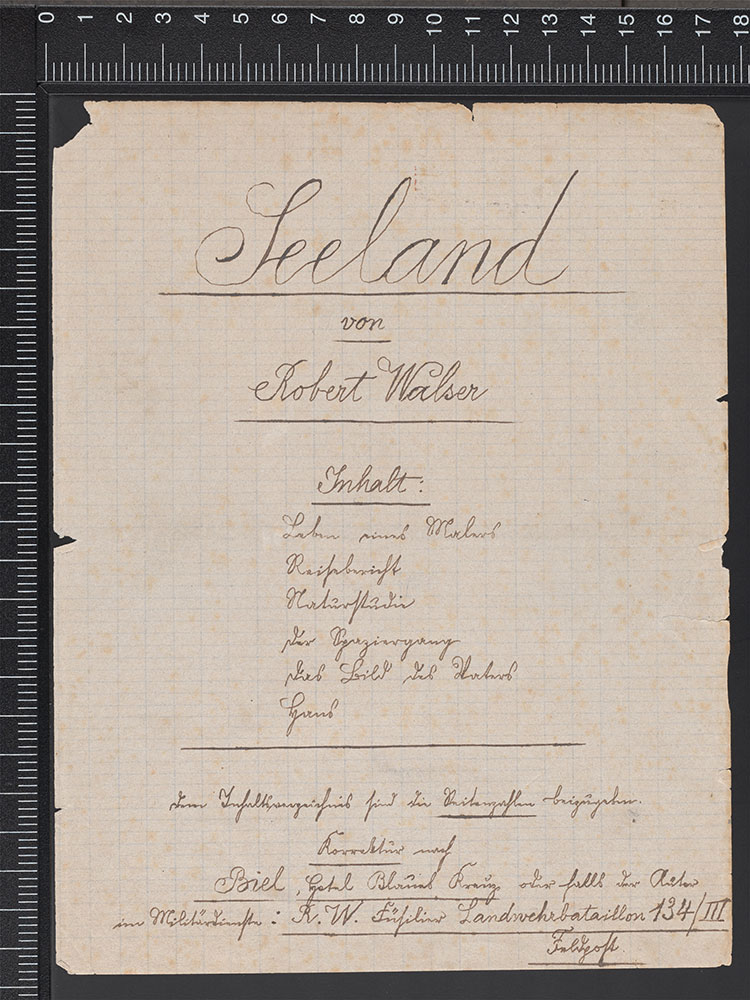 0 1 2 3 4 5 6 7 8 9 10 11 12 13 14 15 16 17 18
Seeland
von
Robert Walser
Inhalt:
Leben eines Malers
Reisebericht
Naturstudie
Der Spaziergang
Das Bild des Vaters
Hans
Dem Inhaltsverzeichnis sind die Seitenzahlen beizugeben.
Korrektur nach
Biel, Hotel Blaues Kreuz, oder falls der Autor
im Militärdienste: R. W. Füsilier Landwehrbataillon 134/III
Feldpost